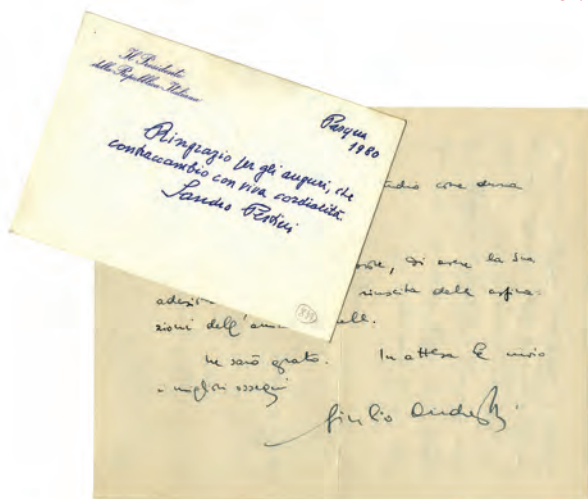 Il Presidente
della Repubblica Italiana
Pasqua
1980
Ringrazio per gli auguri, che
contraccambio con viva cordialità.
Sandro Pertini
XVI
di avere la Sua
riuscita delle aspira-
zioni dell'
Le sarò grato. In attesa Le invio
i migliori ossequi
Giulio Andreotti